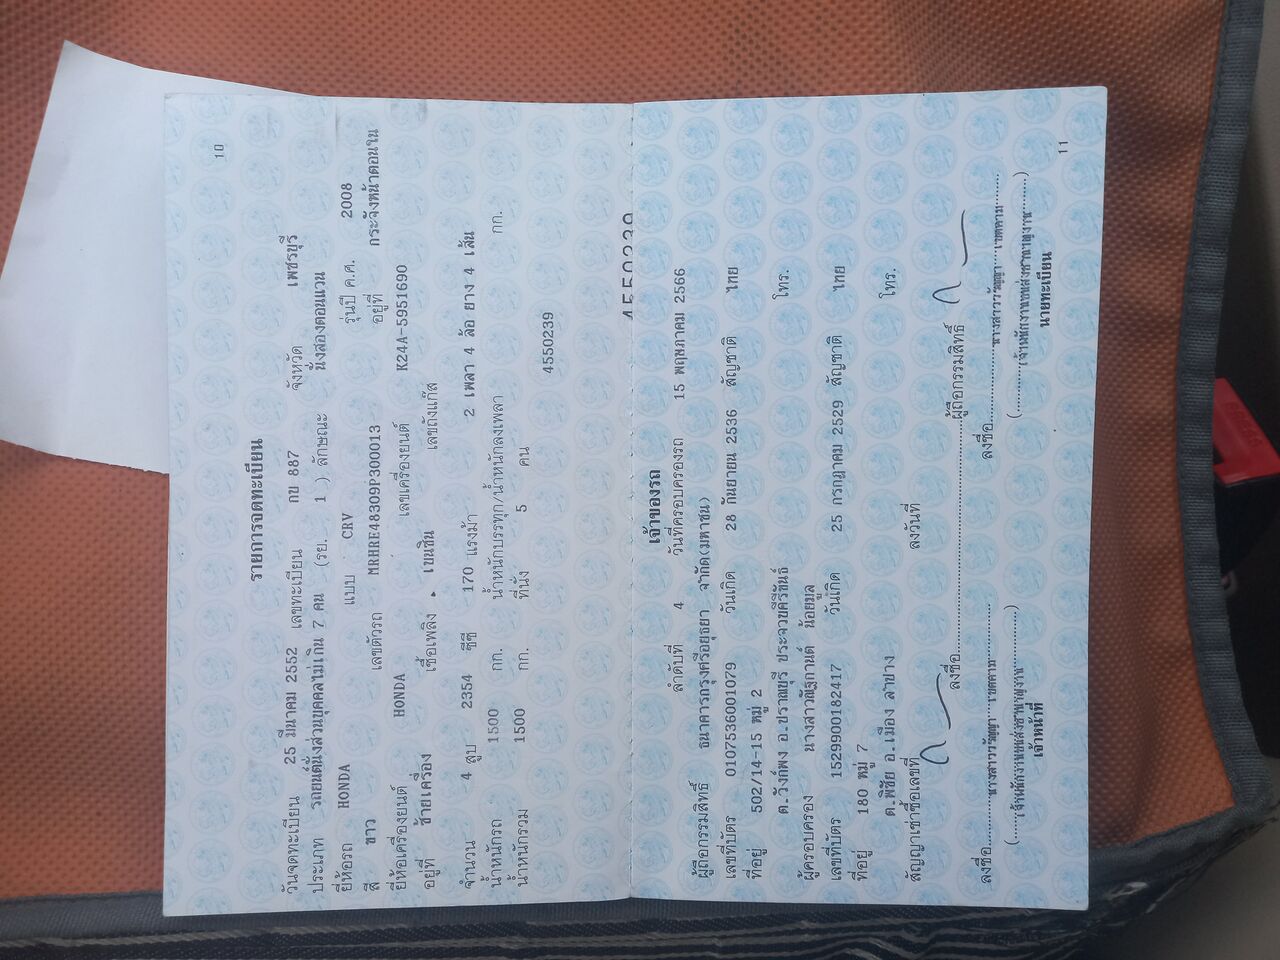 10
รายการจดทะเบียน
วันจดทะเบียน 25 มีนาคม 2552 เลขทะเบียน กข 887 จังหวัด เพชรบุรี
ประเภท รถยนต์นั่งส่วนบุคคลไม่เกิน 7 คน (รย. 1 ) ลักษณะ นั่งสองตอนแวน
ยี่ห้อรถ HONDA แบบ CRV รุ่นปี ค.ศ. 2008
สี ขาว เลขตัวรถ MRHRE48309P300013 อยู่ที่ กระจังหน้าตอนใน
ยี่ห้อเครื่องยนต์ HONDA เลขเครื่องยนต์ K24A-5951690
อยู่ที่ ซ้ายเครื่อง เชื้อเพลิง เบนซิน เลขถังแก๊ส
จำนวน 4 สูบ 2354 ซีซี 170 แรงม้า 2 เพลา 4 ล้อ ยาง 4 เส้น
น้ำหนักรถ 1500 กก. น้ำหนักบรรทุก/น้ำหนักลงเพลา กก.
น้ำหนักรวม 1500 กก. ที่นั่ง 5 คน
4550239
4550239
เจ้าของรถ
ลำดับที่ 4 วันที่ครอบครองรถ 15 พฤษภาคม 2566
ผู้ถือกรรมสิทธิ์ ธนาคารกรุงศรีอยุธยา จำกัด(มหาชน)
เลขที่บัตร 0107536001079 วันเกิด 28 กันยายน 2536 สัญชาติ ไทย
ที่อยู่ 502/14-15 หมู่ 2
ต.วังก์พง อ.ปราณบุรี ประจวบคีรีขันธ์ โทร.
ผู้ครอบครอง นางสาวณัฐกานต์ น้อยมูล
เลขที่บัตร 1529900182417 วันเกิด 25 กรกฎาคม 2529 สัญชาติ ไทย
ที่อยู่ 180 หมู่ 7
ต.พิชัย อ.เมือง ลำปาง โทร.
สัญญาเช่าซื้อเลขที่ ลงวันที่
ลงชื่อ ผู้ถือกรรมสิทธิ์
ลงชื่อ นางสาววรัญญา ลงชื่อ นางสาววรัญญา
(เจ้าพนักงานขนส่งชำนาญงาน) (เจ้าพนักงานขนส่งชำนาญงาน)
เจ้าหน้าที่ นายทะเบียน
11